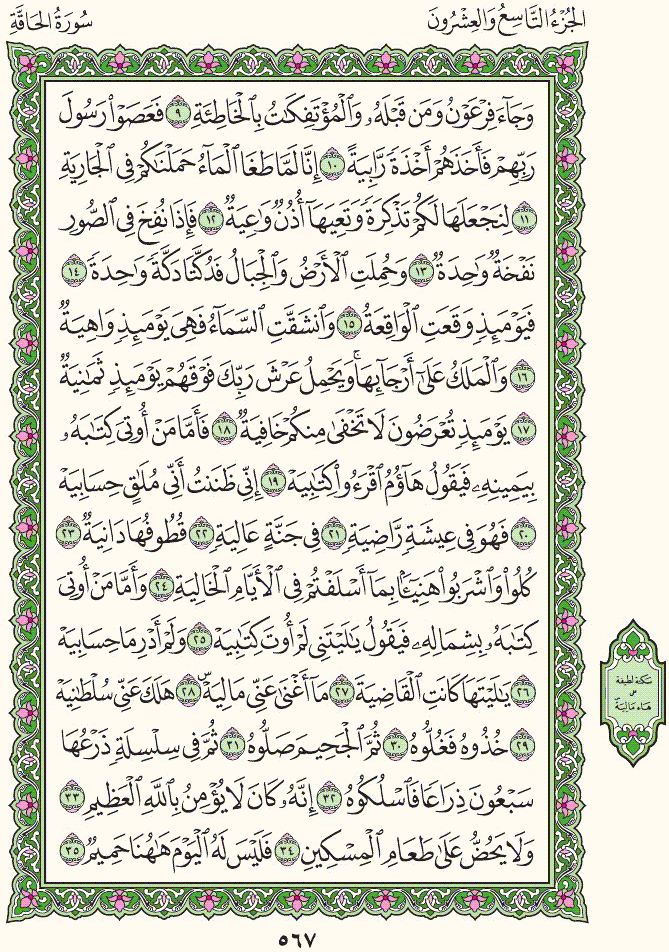 الجُزْءُ التَّاسِعُ وَالعِشْرُونَ
سُورَةُ الحَاقَّةِ
وَجَآءَ فِرْعَوْنُ وَمَن قَبْلَهُۥ وَٱلْمُؤْتَفِكَٰتُ بِٱلْخَاطِئَةِ ٩ فَعَصَوْا۟ رَسُولَ
رَبِّهِمْ فَأَخَذَهُمْ أَخْذَةً رَّابِيَةً ١٠ إِنَّا لَمَّا طَغَا ٱلْمَآءُ حَمَلْنَٰكُمْ فِى ٱلْجَارِيَةِ
١١ لِنَجْعَلَهَا لَكُمْ تَذْكِرَةً وَتَعِيَهَآ أُذُنٌ وَٰعِيَةٌ ١٢ فَإِذَا نُفِخَ فِى ٱلصُّورِ
نَفْخَةٌ وَٰحِدَةٌ ١٣ وَحُمِلَتِ ٱلْأَرْضُ وَٱلْجِبَالُ فَدُكَّتَا دَكَّةً وَٰحِدَةً ١٤
فَيَوْمَئِذٍ وَقَعَتِ ٱلْوَاقِعَةُ ١٥ وَٱنشَقَّتِ ٱلسَّمَآءُ فَهِىَ يَوْمَئِذٍ وَاهِيَةٌ
١٦ وَٱلْمَلَكُ عَلَىٰٓ أَرْجَآئِهَا ۚ وَيَحْمِلُ عَرْشَ رَبِّكَ فَوْقَهُمْ يَوْمَئِذٍ ثَمَٰنِيَةٌ
١٧ يَوْمَئِذٍ تُعْرَضُونَ لَا تَخْفَىٰ مِنكُمْ خَافِيَةٌ ١٨ فَأَمَّا مَنْ أُوتِىَ كِتَٰبَهُۥ
بِيَمِينِهِۦ فَيَقُولُ هَآؤُمُ ٱقْرَءُوا۟ كِتَٰبِيَهْ ١٩ إِنِّى ظَنَنتُ أَنِّى مُلَٰقٍ حِسَابِيَهْ
٢٠ فَهُوَ فِى عِيشَةٍ رَّاضِيَةٍ ٢١ فِى جَنَّةٍ عَالِيَةٍ ٢٢ قُطُوفُهَا دَانِيَةٌ ٢٣
كُلُوا۟ وَٱشْرَبُوا۟ هَنِيٓـًٔۢا بِمَآ أَسْلَفْتُمْ فِى ٱلْأَيَّامِ ٱلْخَالِيَةِ ٢٤ وَأَمَّا مَنْ أُوتِىَ
كِتَٰبَهُۥ بِشِمَالِهِۦ فَيَقُولُ يَٰلَيْتَنِى لَمْ أُوتَ كِتَٰبِيَهْ ٢٥ وَلَمْ أَدْرِ مَا حِسَابِيَهْ
٢٦ يَٰلَيْتَهَا كَانَتِ ٱلْقَاضِيَةَ ٢٧ مَآ أَغْنَىٰ عَنِّى مَالِيَهْ ۜ ٢٨ هَلَكَ عَنِّى سُلْطَٰنِيَهْ
٢٩ خُذُوهُ فَغُلُّوهُ ٣٠ ثُمَّ ٱلْجَحِيمَ صَلُّوهُ ٣١ ثُمَّ فِى سِلْسِلَةٍ ذَرْعُهَا
سَبْعُونَ ذِرَاعًا فَٱسْلُكُوهُ ٣٢ إِنَّهُۥ كَانَ لَا يُؤْمِنُ بِٱللَّهِ ٱلْعَظِيمِ ٣٣
وَلَا يَحُضُّ عَلَىٰ طَعَامِ ٱلْمِسْكِينِ ٣٤ فَلَيْسَ لَهُ ٱلْيَوْمَ هَٰهُنَا حَمِيمٌ ٣٥
سكتة لطيفة
على
هاء مَالِيَهْ
٥٦٧